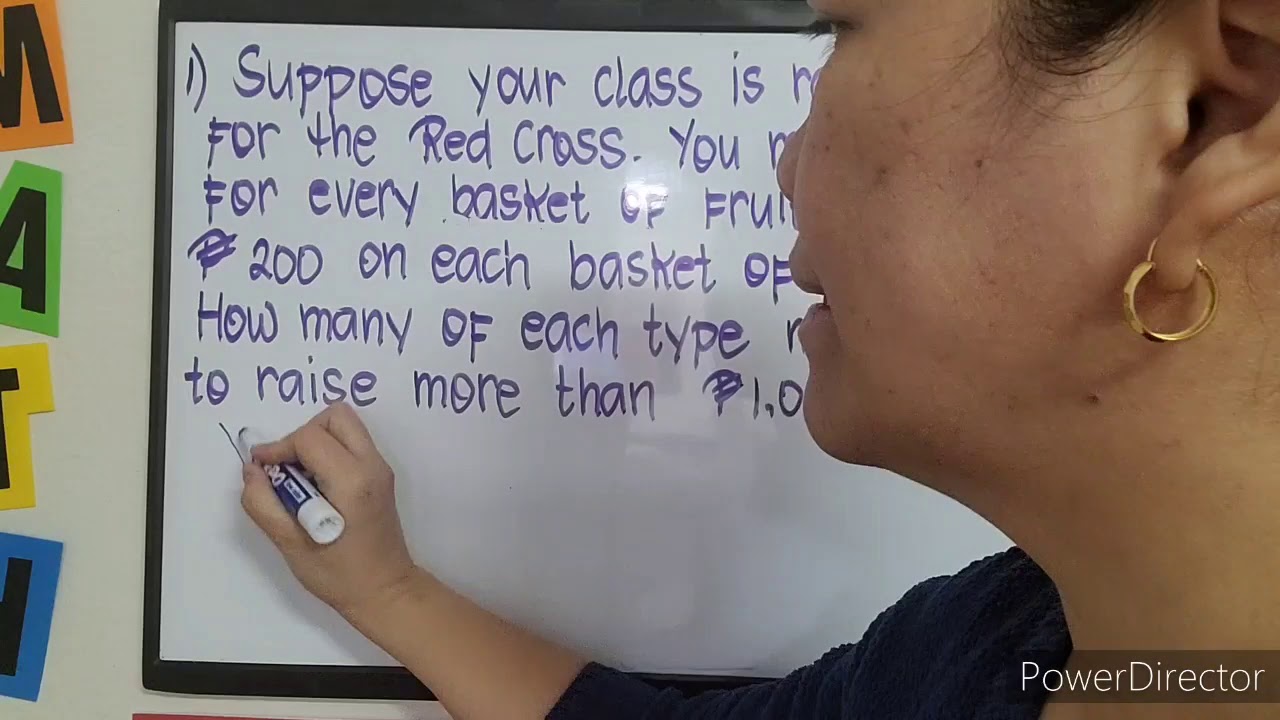 M
A
T
H
1) Suppose your class is
for the Red Cross. You
for every basket of
₱200 on each basket of
How many of each type
to raise more than
PowerDirector